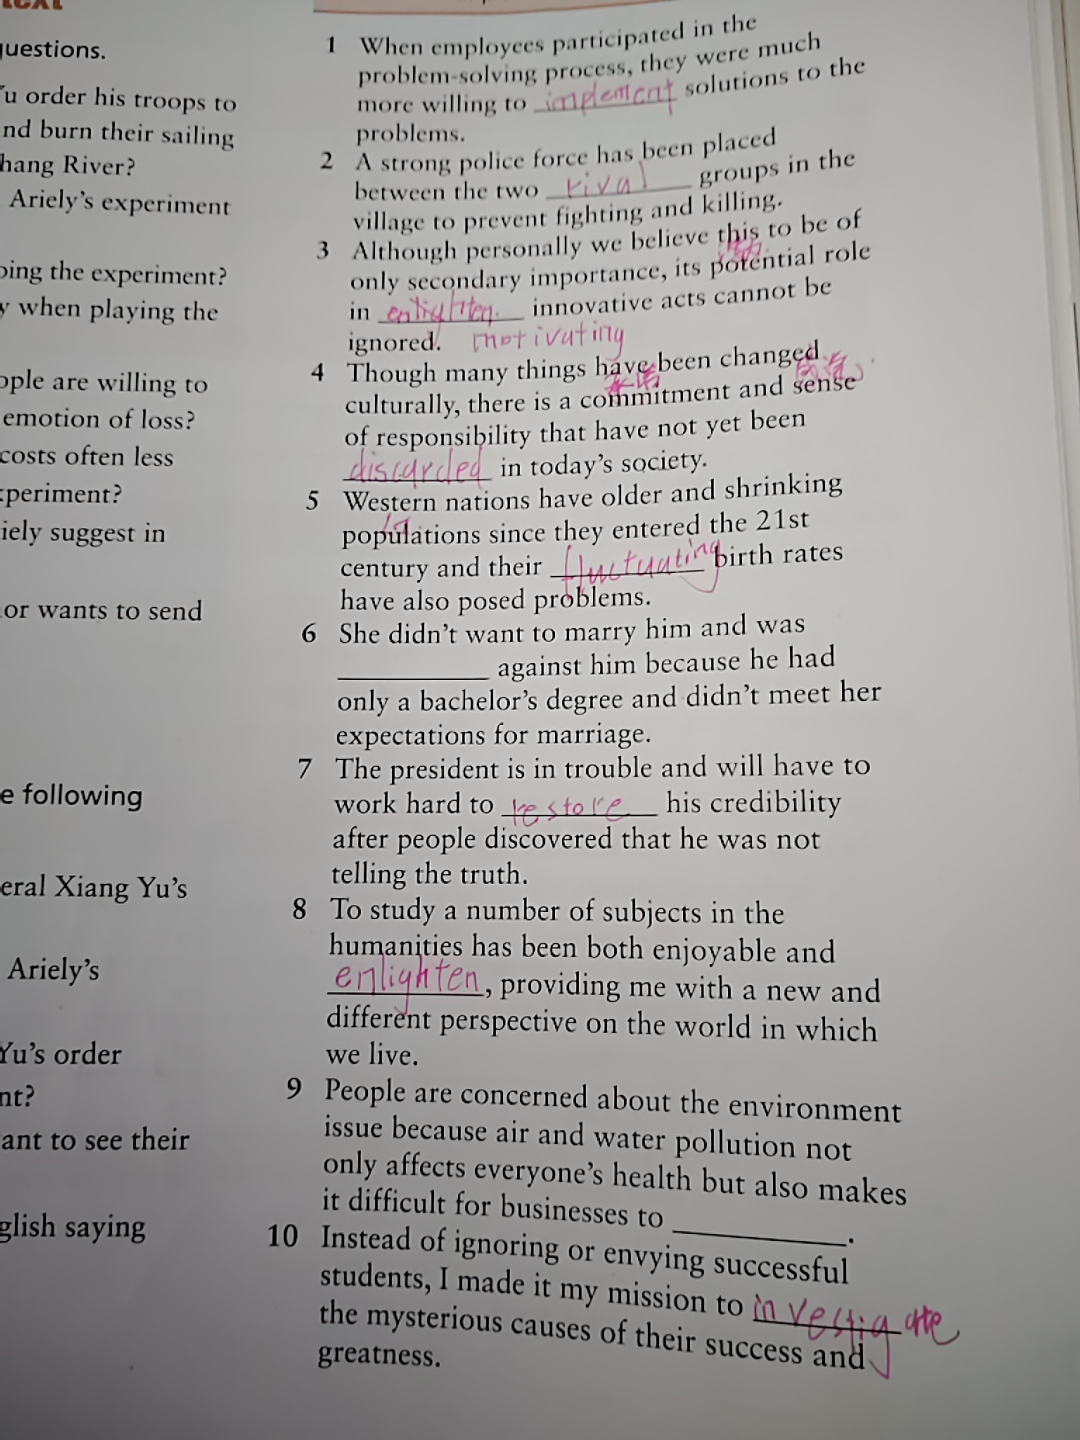 text
questions.
u order his troops to
nd burn their sailing
hang River?
Ariely's experiment
oing the experiment?
y when playing the
ople are willing to
emotion of loss?
costs often less
periment?
iely suggest in
or wants to send
e following
eral Xiang Yu's
Ariely's
Yu's order
nt?
ant to see their
glish saying
1 When employees participated in the
problem-solving process, they were much
more willing to implement solutions to the
problems.
2 A strong police force has been placed
between the two rival groups in the
village to prevent fighting and killing.
3 Although personally we believe this to be of
only secondary importance, its potential role
in enlighten innovative acts cannot be
ignored. motivating
4 Though many things have been changed
culturally, there is a commitment and sense
of responsibility that have not yet been
discarded in today's society.
5 Western nations have older and shrinking
populations since they entered the 21st
century and their fluctuating birth rates
have also posed problems.
6 She didn't want to marry him and was
against him because he had
only a bachelor's degree and didn't meet her
expectations for marriage.
7 The president is in trouble and will have to
work hard to restore his credibility
after people discovered that he was not
telling the truth.
8 To study a number of subjects in the
humanities has been both enjoyable and
enlighten, providing me with a new and
different perspective on the world in which
we live.
9 People are concerned about the environment
issue because air and water pollution not
only affects everyone's health but also makes
it difficult for businesses to .
10 Instead of ignoring or envying successful
students, I made it my mission to investigate
the mysterious causes of their success and
greatness.